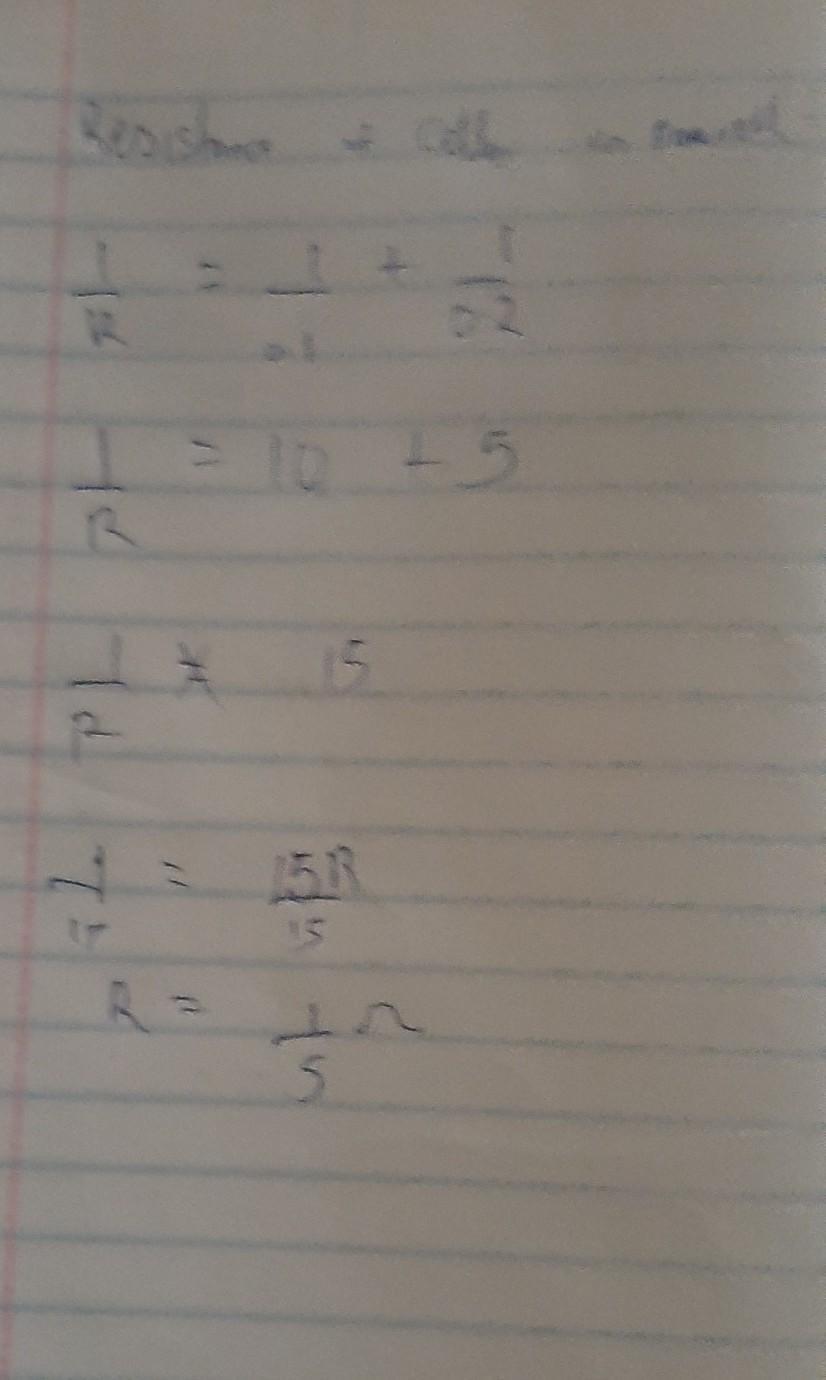 Resistance of Cells in
1/R = 1/0.1 + 1/0.2
1/R = 10 + 5
1/R = 15
1/15 = 15R/15
R = 1/5 Ω